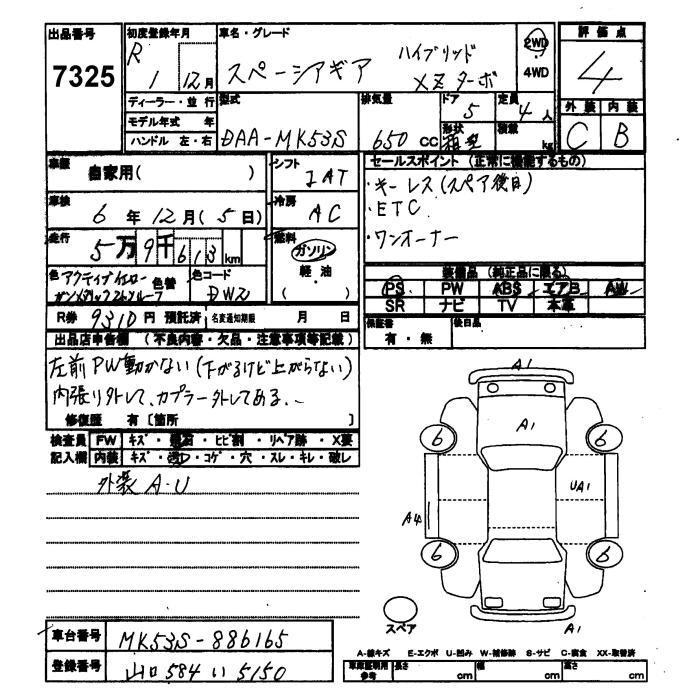 出品番号
7325
初度登録年月
R 1 12月
車名・グレード
スペーシアギア ハイブリッド XZターボ
2WD
4WD
評価点
4
ディーラー・並行
モデル年式 年
ハンドル 左・右
型式
DAA-MK53S
排気量
650 CC
ドア
5
形状
箱型
定員
4人
積載
kg
外装 内装
C B
車歴
自家用( )
シフト
IAT
車検
6年 12月(5日)
冷房
AC
走行
5万9千613km
燃料
ガソリン
軽・油
( )
色 アクティブイエロー
ガンメタリック2トンルーフ
色替
色コード
DWZ
R券 9310円 預託済 名変通知期限 月 日
セールスポイント(正常に機能するもの)
・キーレス(スペア後日)
・ETC
・ワンオーナー
装備品(純正品に限る)
PS PW ABS エアB AW
SR ナビ TV 本革
保証書
有・無
後日品
出品店申告欄(不良内容・欠品・注意事項等記載)
左前PW動かない(下がるけど上がらない)
内張り外して、カプラー外してある。
修復歴 有〔箇所 〕
検査員 FW キズ・飛石・ヒビ割・リペア跡・X要
記入欄 内装 キズ・汚レ・コゲ・穴・スレ・キレ・破レ
外装 A・U
A1
A1
6
6
UA1
A4
6
6
スペア
A1
車台番号
MK53S-886165
登録番号
山口 584 い 5150
A-線キズ E-エクボ U-凹み W-補修跡 S-サビ C-腐食 XX-取替済
車庫証明用参考 長さ cm 幅 cm 高さ cm